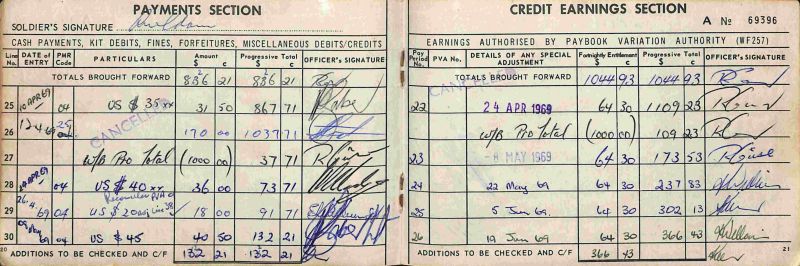 PAYMENTS SECTION
SOLDIER'S SIGNATURE
CASH PAYMENTS, KIT DEBITS, FINES, FORFEITURES, MISCELLANEOUS DEBITS/CREDITS
Line No. DATE of ENTRY PMR Code PARTICULARS Amount $ c Progressive Total $ c OFFICER'S SIGNATURE
TOTALS BROUGHT FORWARD 836 21 836 21
25 10 APR 69 04 US $ 35 xx 31 50 867 71
CANCELLED
26 12.4.69 25 04 170 00 1037 71
27 W/B Pro Total (1000 00) 37 71
28 APR 69 04 US $ 40 xx 36 00 73 71
29 26.4.69 04 US $ 20 18 00 91 71
30 09 May 69 04 US $ 45 40 50 132 21
20 ADDITIONS TO BE CHECKED AND C/F 132 21 132 21
CREDIT EARNINGS SECTION
A No 69396
EARNINGS AUTHORISED BY PAYBOOK VARIATION AUTHORITY (WF257)
Pay Period No. PVA No. DETAILS OF ANY SPECIAL ADJUSTMENT Fortnightly Entitlement $ c Progressive Total $ c OFFICER'S SIGNATURE
TOTALS BROUGHT FORWARD 1044 93 1044 93
CANCELLED
22 24 APR 1969 64 30 1109 23
W/B Pro Total (1000 00) 109 23
23 -8 MAY 1969 64 30 173 53
24 22 May 69 64 30 237 83
25 5 Jun 69. 64 30 302 13
26 19 Jun 69 64 30 366 43
ADDITIONS TO BE CHECKED AND C/F 366 43 21